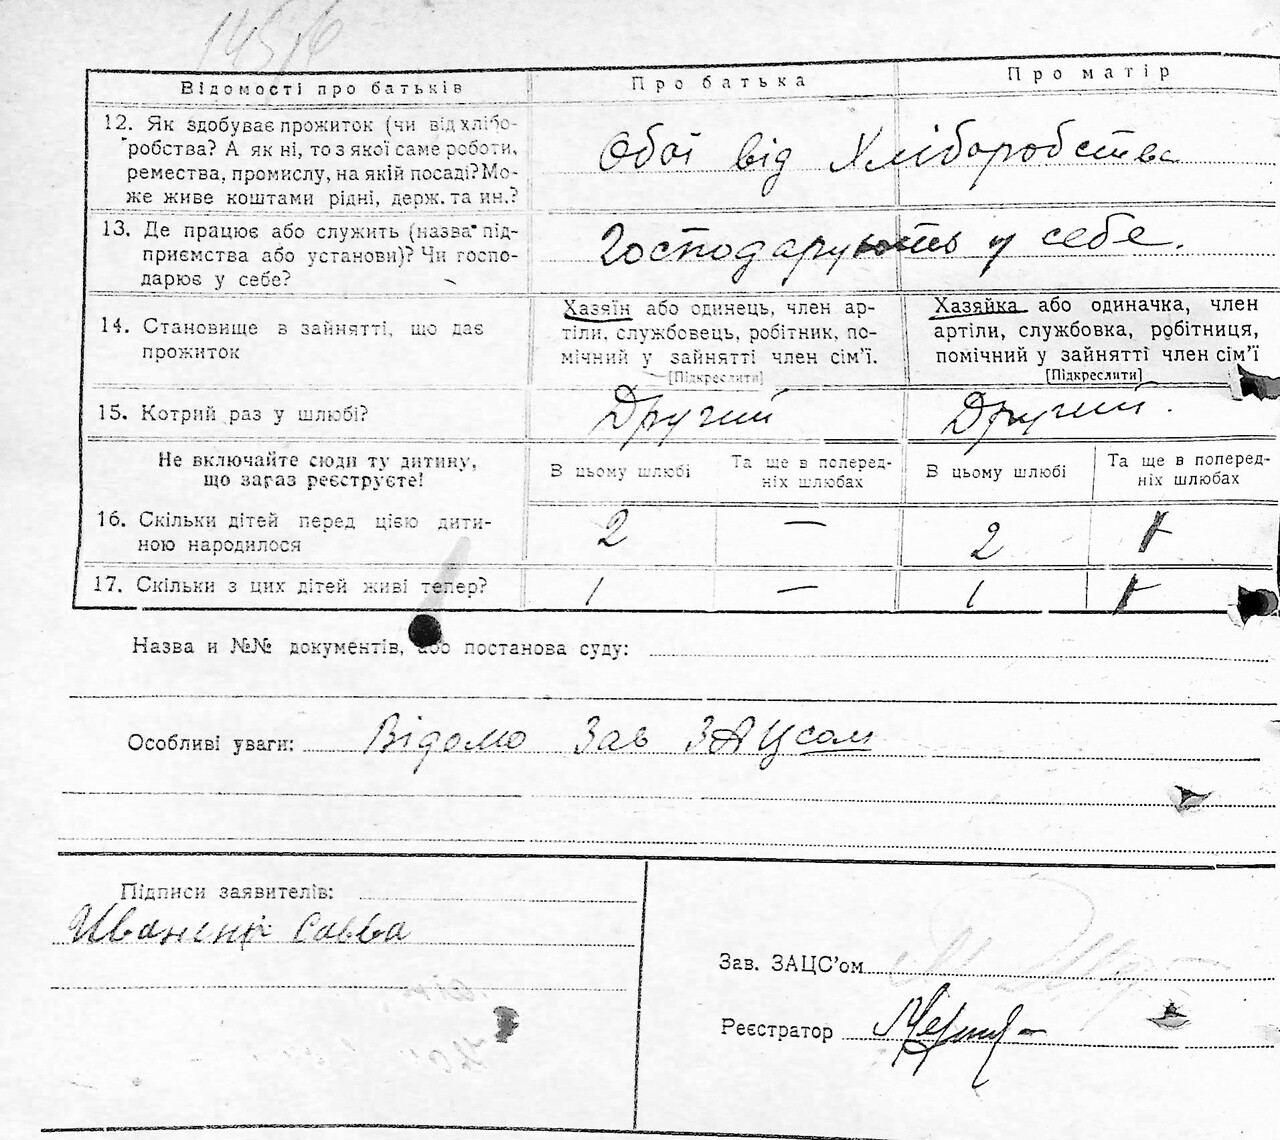 Відомості про батьків
Про батька
Про матір
12. Як здобуває прожиток (чи від хлібо-
робства? А як ні, то з якої саме роботи,
ремества, промислу, на якій посаді? Мо-
же живе коштами рідні, держ. та ин.?
Обоі від Хліборобства
13. Де працює або служить (назва під-
приємства або установи)? Чи госпо-
дарює у себе?
Господарують у себе.
14. Становище в зайнятті, що дає
прожиток
Хазяїн або одинець, член ар-
тіли, службовець, робітник, по-
мічний у зайнятті член сім'ї.
[Підкреслити]
Хазяйка або одиначка, член
артіли, службовка, робітниця,
помічний у зайнятті член сім'ї
[Підкреслити]
15. Котрий раз у шлюбі?
Другий
Другий.
Не включайте сюди ту дитину,
що зараз реєструєте!
В цьому шлюбі
Та ще в поперед-
ніх шлюбах
В цьому шлюбі
Та ще в поперед-
ніх шлюбах
16. Скільки дітей перед цією дити-
ною народилося
2 — 2
17. Скільки з цих дітей живі тепер?
1 — 1
Назва и №№ документів, або постанова суду:
Особливі уваги: Відомо Зав ЗАЦСом
Підписи заявителів:
Савва
Зав. ЗАЦС'ом
Реєстратор